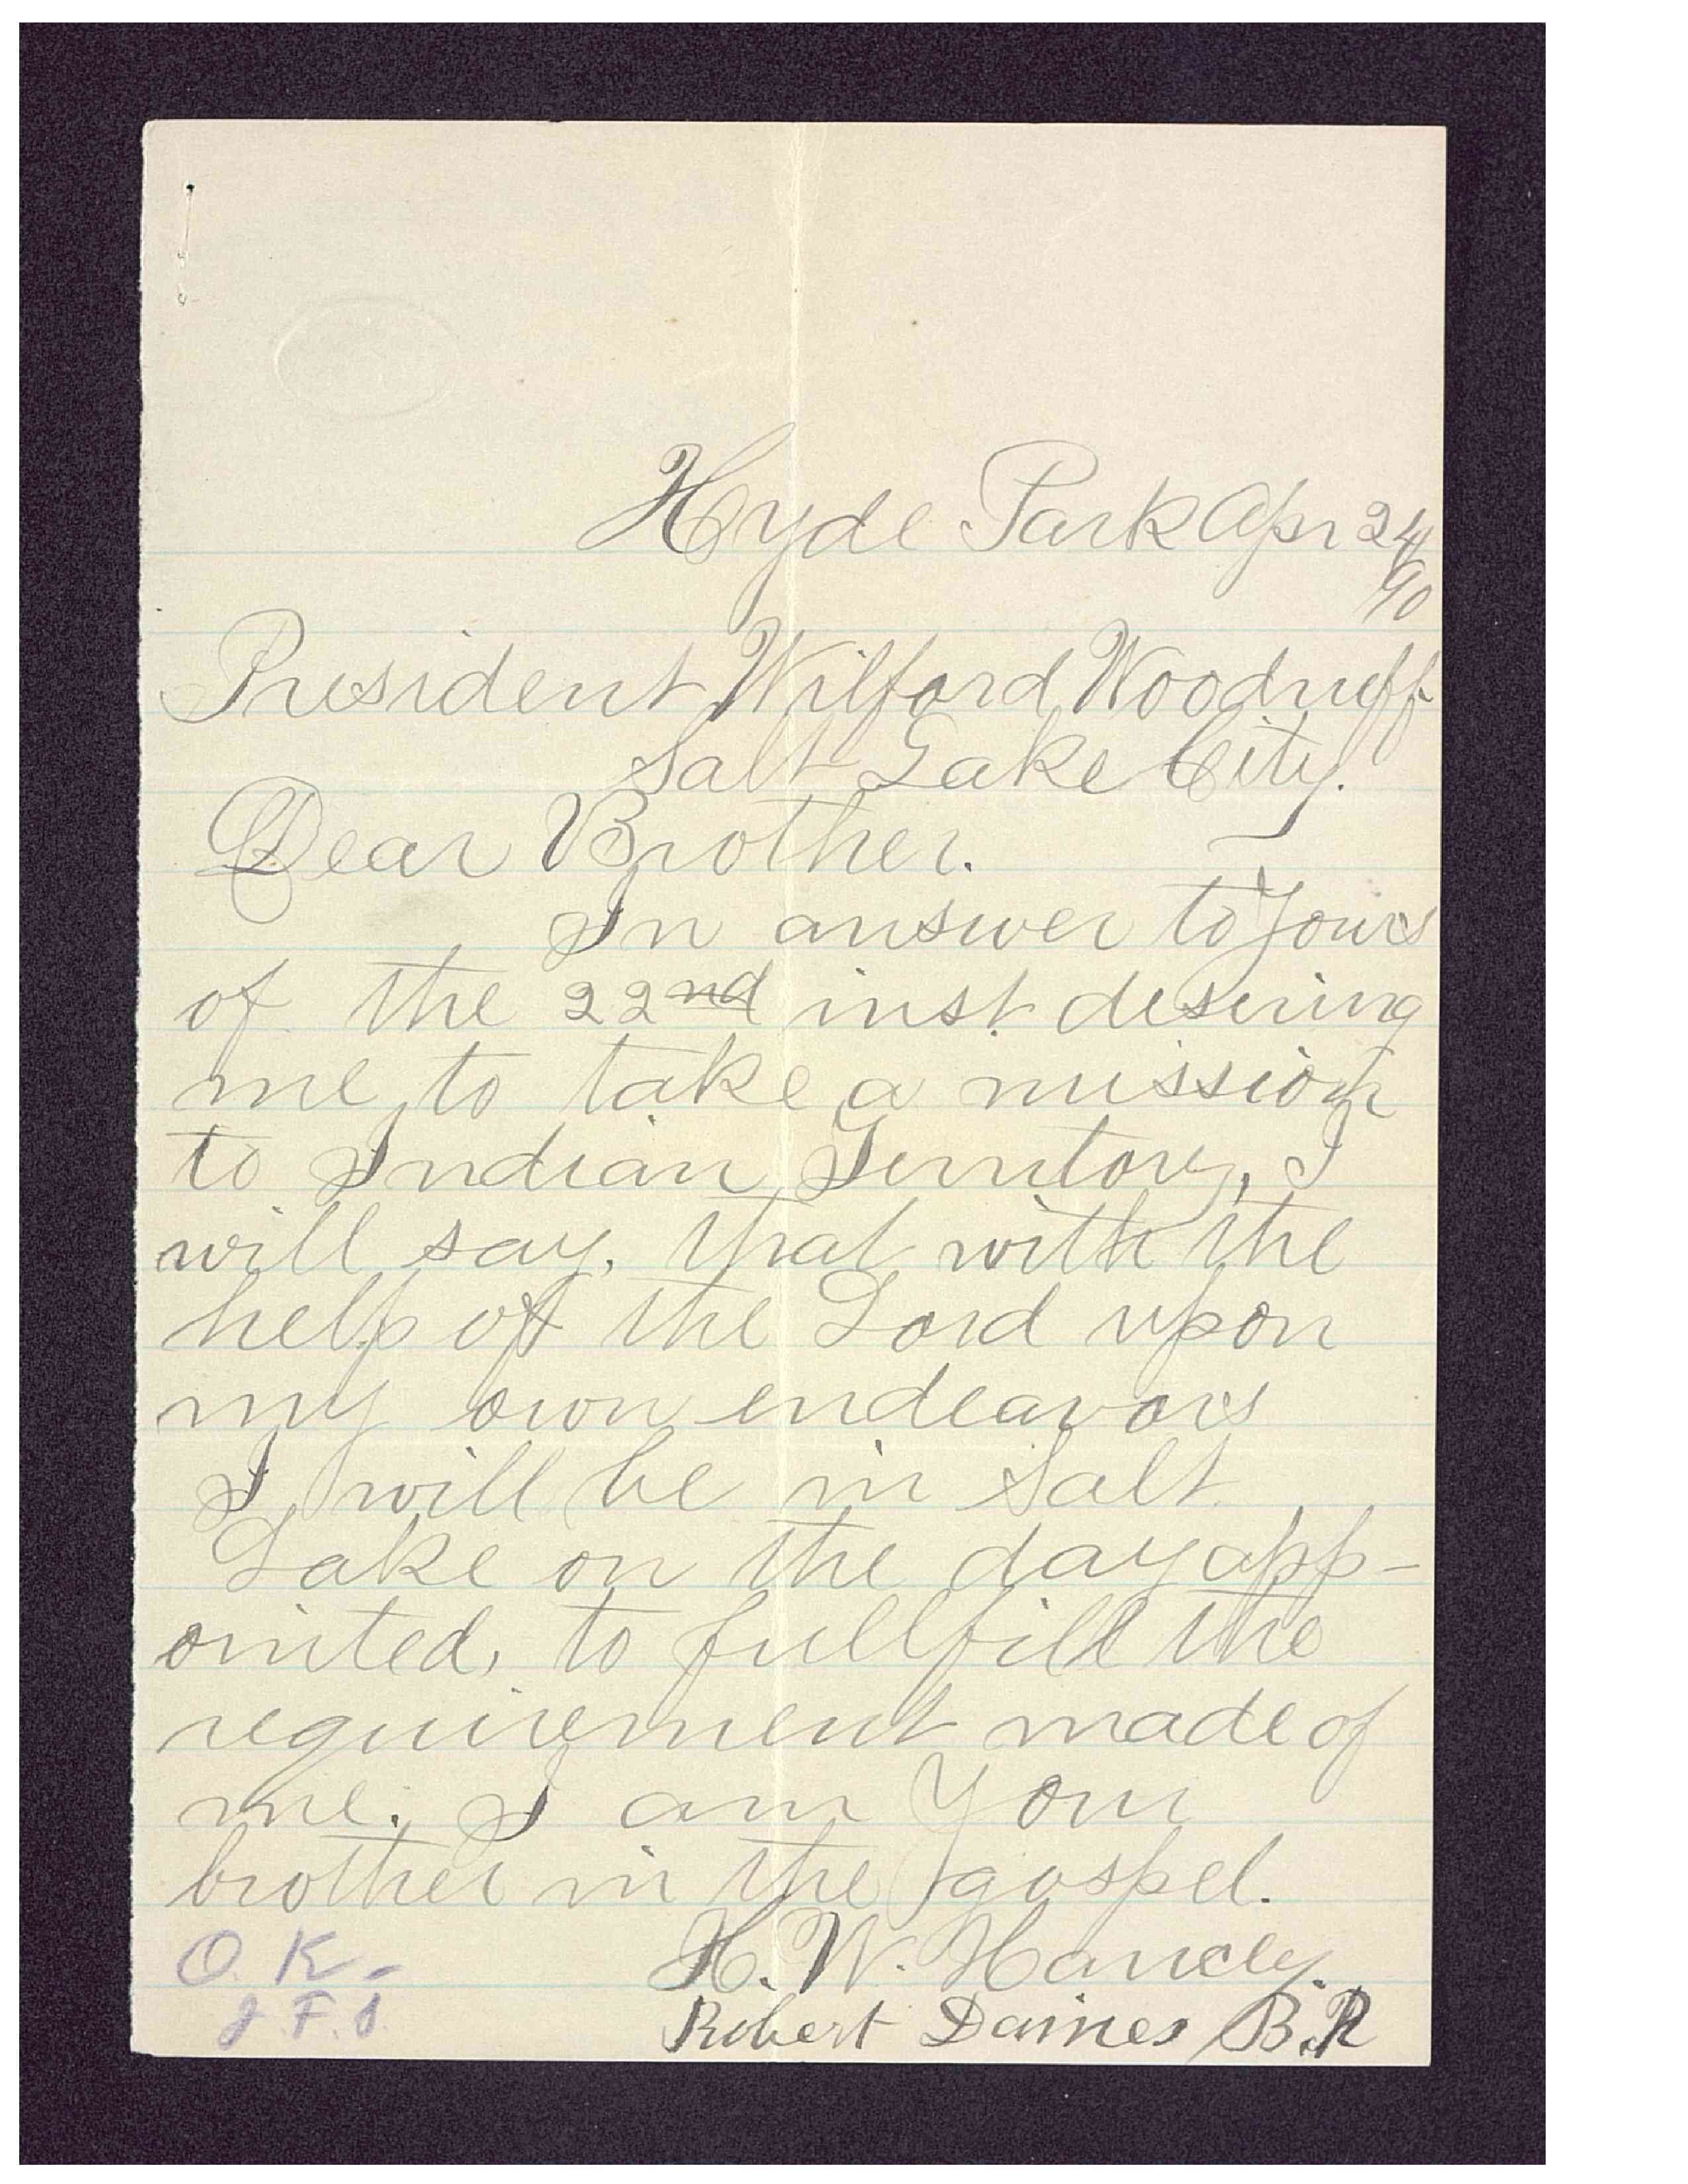 Hyde Park Apr 24
/90
President Wilford Woodruff
Salt Lake City.
Dear Brother.
In answer to yours
of the 22nd inst desiring
me to take a mission
to Indian Territory, I
will say, that with the
help of the Lord upon
my own endeavors
I will be in Salt
Lake on the day app-
ointed, to fullfill the
requirement made of
me. I am Your
brother in the gospel.
H. W. Hancey.
Robert Daines B.P
O. K-
J. F. S.